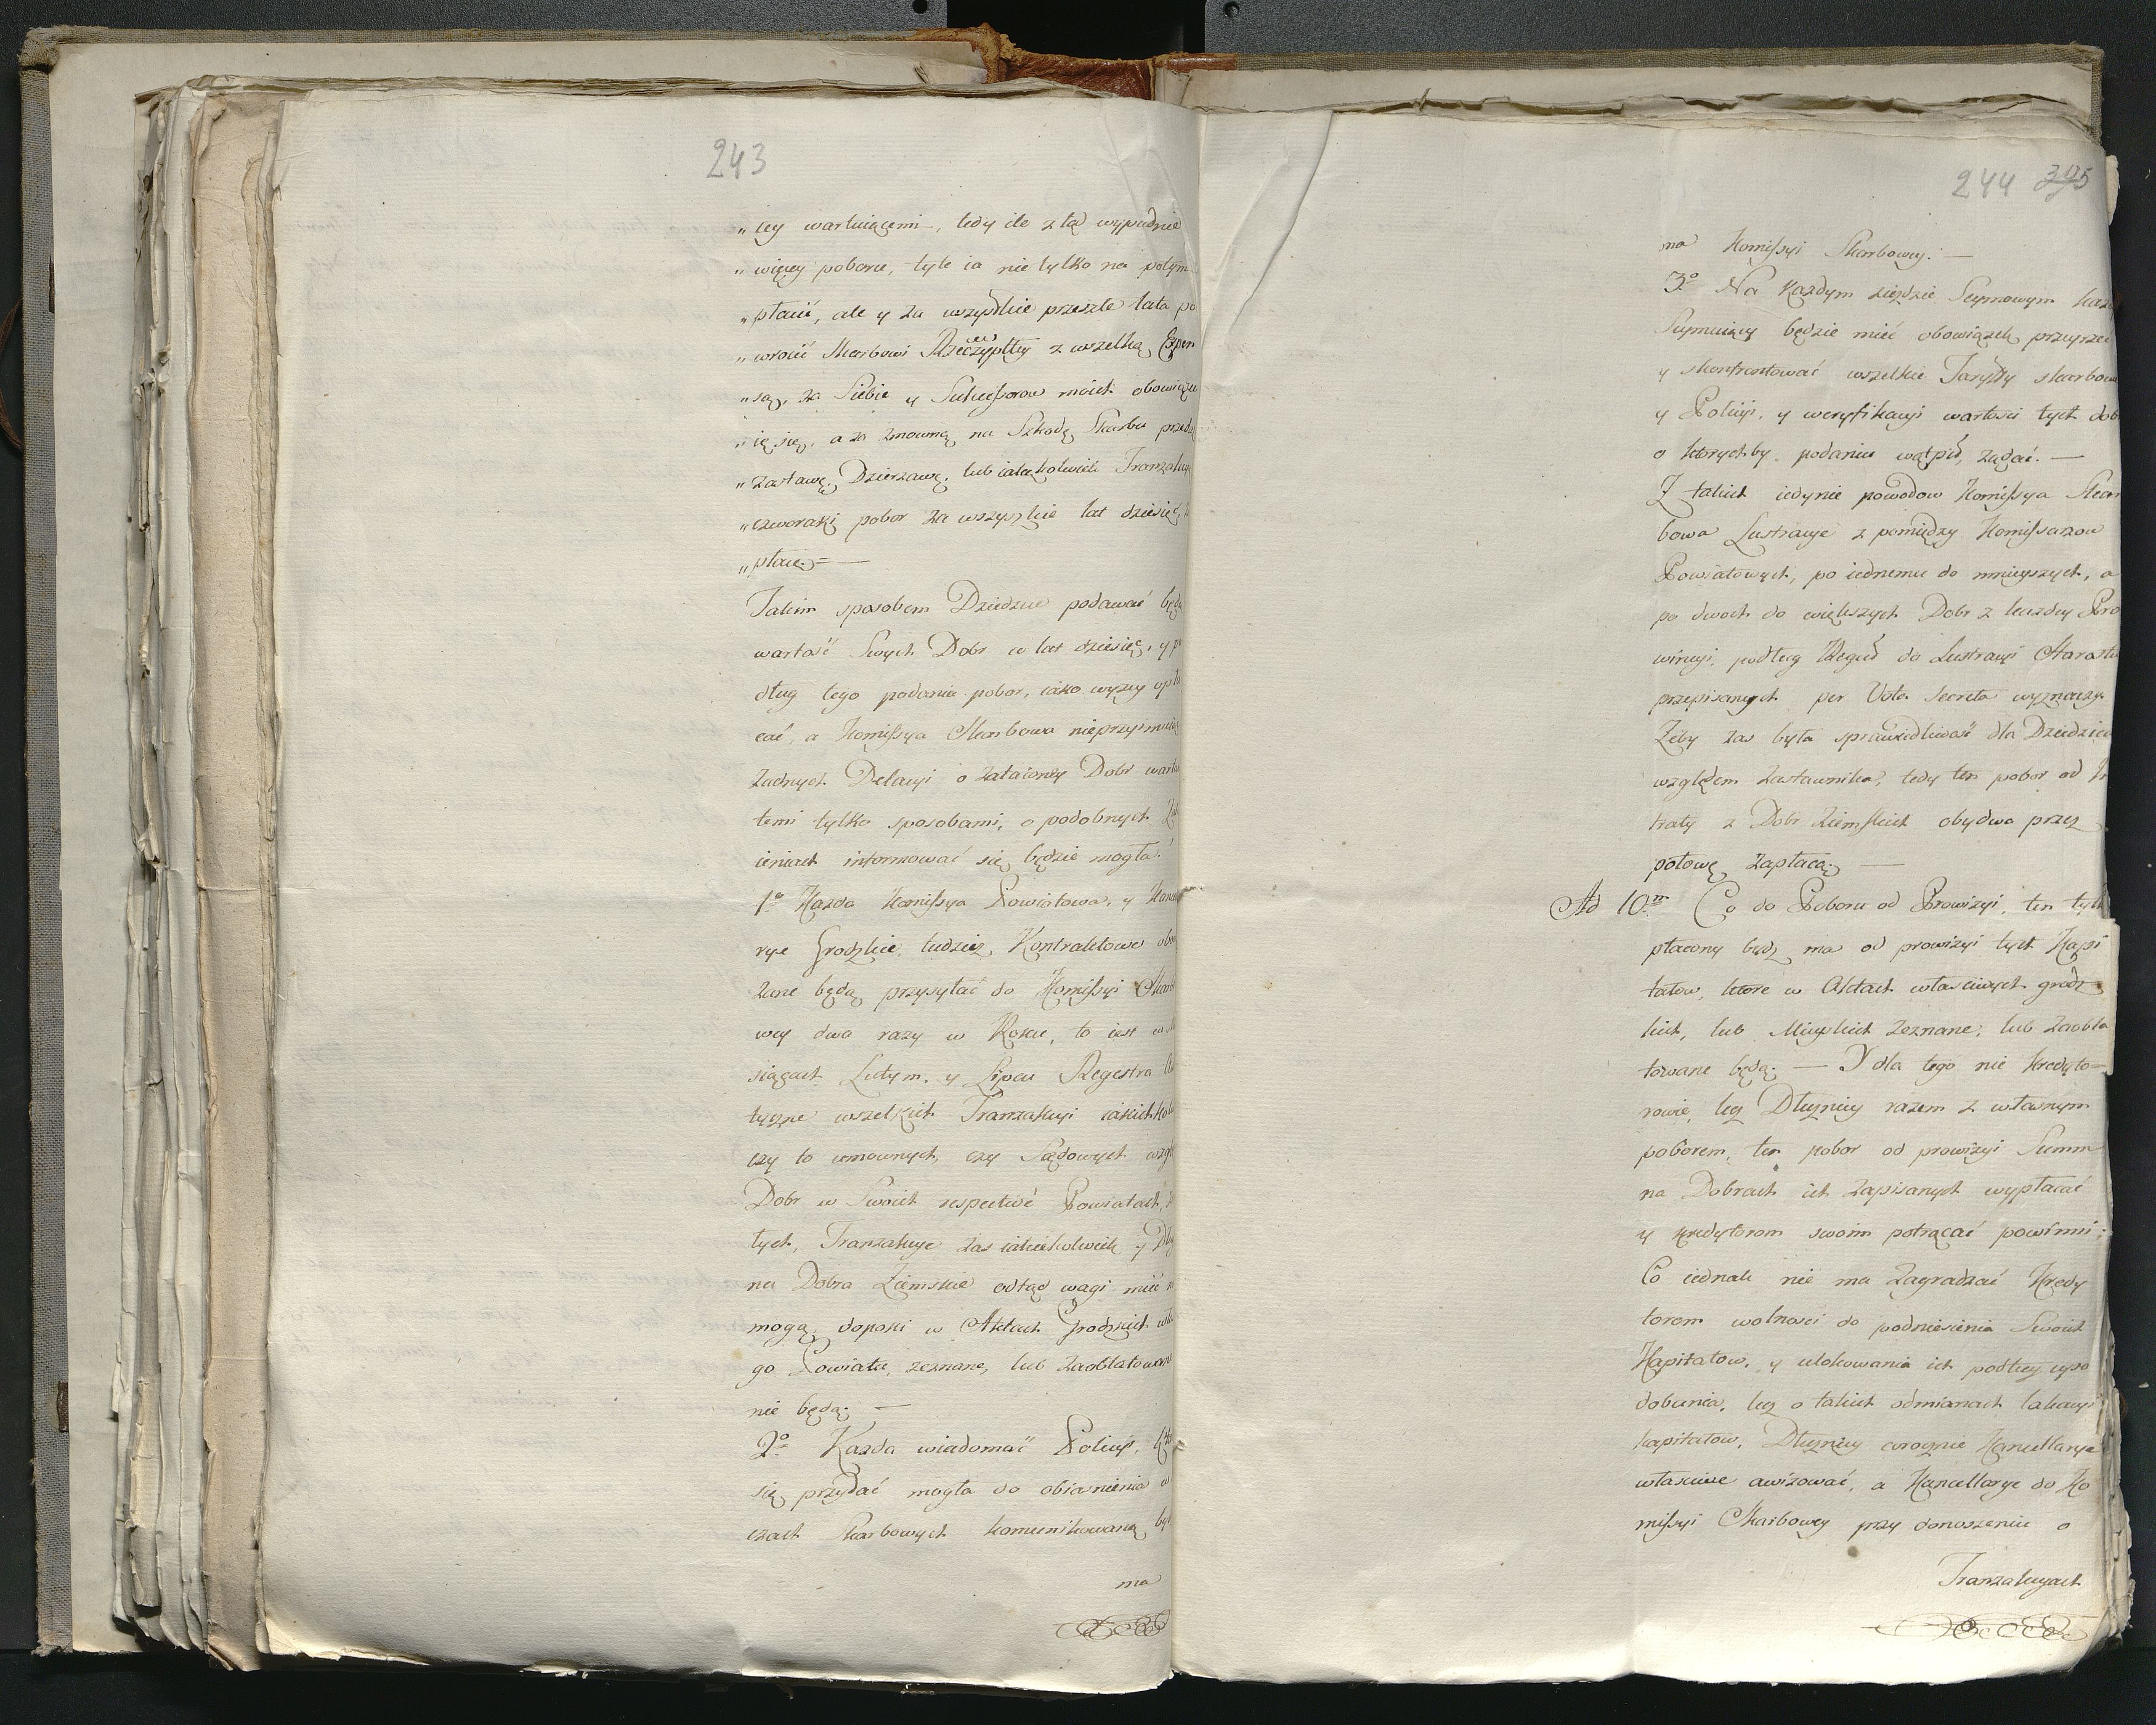 243
„ cey wartuiącemi, tedy ile z tą wypadnie
„ więcy poboru, tyle ia nie tylko na potym
„ płacić, ale y za wszystkie przeszłe lata po
„ wrócić Skarbowi Rzeczypltey z wszelką Expen
„ są, za Siebie y Sukcessorow moich obowiązu
„ ię się, a za zmowną na Szkodę Skarbu przedaż
„ zastawę, Dzierzawę, lub iakąkolwiek Tranzakcyą
„ czworaki pobor za wszyskie lat dziesięć
„ płacę = —
Takim sposobem Dziedzice podawać będą
wartość Swych Dobr w lat dziesięć, y po
dług tego podania pobor, iako wyżey opła
cać, a Komissya Skarbowa nieprzyimuiąc
żadnych Delacyi o zataioney Dobr wartości
temi tylko sposobami, o podobnych Zat
ieniach informować się będzie mogła.
1º Kazda Komissya Powiatowa, y Kancella
rye Grodzkie, tudzież Kontraktowe obowią
zane będą przysyłać do Komissyi Skarbo
wey dwa razy w Roku, to iest w Mie
siącach Lutym, y Lipcu Regestra
tyczne wszelkich Tranzakcyi iakichkol
czy to umownych, czy Sądowych wzglę
Dobr w Swoich respective Powiatach,
tych, Tranzakcye zas iakiekolwiek y Dłu
na Dobra Ziemskie odtąd wagi mieć n
mogą, dopoki w Aktach Grodzkich wła
go Powiatu, zeznane, lub zaoblatowane
nie będą. —
2º Kazda wiadomość Policyi, kto
się przydać mogła do obiaśnienia w
czach Skarbowych kommunikowaną być
ma
244 305
na Komissyi Skarbowey. —
3º Na Kazdym zieździe Seymowym kazdy
Seymuiący będzie mieć obowiązek przeyrzeć
y skonfrontować wszelkie Taryffy skarbowe
y Policyi, y weryfikacyi wartości tych dobr
o ktorychby podaniu wątpił, żądać. —
Z takich iedynie powodow Komissya Skar
bowa Lustracye z pomiędzy Komissarzow
Powiatowych, po iednemu do mnieyszych, a
po dwoch do większych Dobr z kazdey Pro
wincyi, podług Reguł do Lustracyi Starostw
przepisanych per Vota Secreta wyznaczy.
Żeby zas była sprawiedliwość dla Dziedzica
względem Zastawnika, tedy ten pobor od In
traty z Dobr Ziemskich obydwa przez
połowę zapłacą. —
Ad 10m Co do Poboru od Prowizyi, ten tylko
płacony bydź ma od prowizyi tych Kapi
tałow, ktore w Aktach właściwych grodz
kich, lub Mieyskich zeznane, lub zaobla
towane będą. — Y dla tego nie kredyto=
rowie, lecz Dłużnicy razem z własnym
poborem, ten pobor od prowizyi Summ
na Dobrach ich zapisanych wypłacać
y kredytorom swoim potrącać powinni;
Co iednak nie ma zagradzać Kredy
torom wolności do podniesienia Swoich
Kapitałow, y ulokowania ich podług upo
dobania, lecz o takich odmianach lokacyi
kapitałow, Dłużnicy corocznie Kancellarye
właściwe awizować, a Kancellarye do Ko
missyi Skarbowey przy donoszeniu o
Tranzakcyach